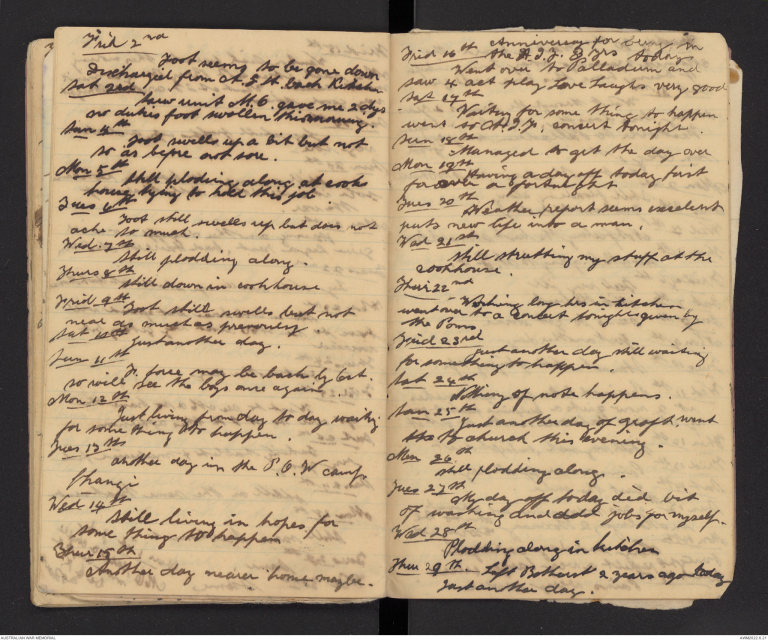 Frid 2nd
Foot seems to be gone down
Discharged from A.G.H. back Kitchen
Sat 3rd
Saw unit M.O. gave me 2 days
no duties foot swollen this morning.
Sun 4th
Foot swells up a bit but not
so as before not sore.
Mon 5th
Still plodding along at cook
house trying to hold this job
Tues 6th
Foot still swells up but does not
ache so much.
Wed. 7th
Still plodding along.
Thurs 8th
Still down in cookhouse
Frid 9th
Foot still swells but not
near as much as previously.
Sat 10th
Just another day.
Sun 11th
F. force may be back by Oct.
so will see the boys once again
Mon 12th
Just living from day to day waiting
for some thing to happen.
Tues 13th
another day in the P.O.W camp
Changi
Wed 14th
Still living in hopes for
some thing to happen
Thur 15th
Another day nearer home maybe.
Frid 16th Anniversary for being in
the A.I.F. 3 yrs today
Went over to Palladium and
saw 4 act play Love Laughs very good
Sat 17th
Waiting for some thing to happen
went to A.I.F. concert tonight.
Sun 18th
Managed to get the day over
Mon 19th
Having a day off today first
for over a fortnight
Tues 20th
Weather report seems excelent
puts new life into a man.
Wed 21st
Still strutting my stuff at the
cookhouse.
Thur 22nd
Working long hrs in kitchen
went over to a concert tonight given by
the Poms
Frid 23rd
Just another day still waiting
for something to happen.
Sat 24th
Nothing of note happens.
Sun 25th
Just another day of graft went
to church this evening.
Mon 26th
Still plodding along.
Tues 27th
My day off today did bit
of washing and odd jobs for myself.
Wed 28th
Plodding along in kitchen
Thur 29th. Left Bathurst 2 years ago today
Just another day.
AUSTRALIAN WAR MEMORIAL